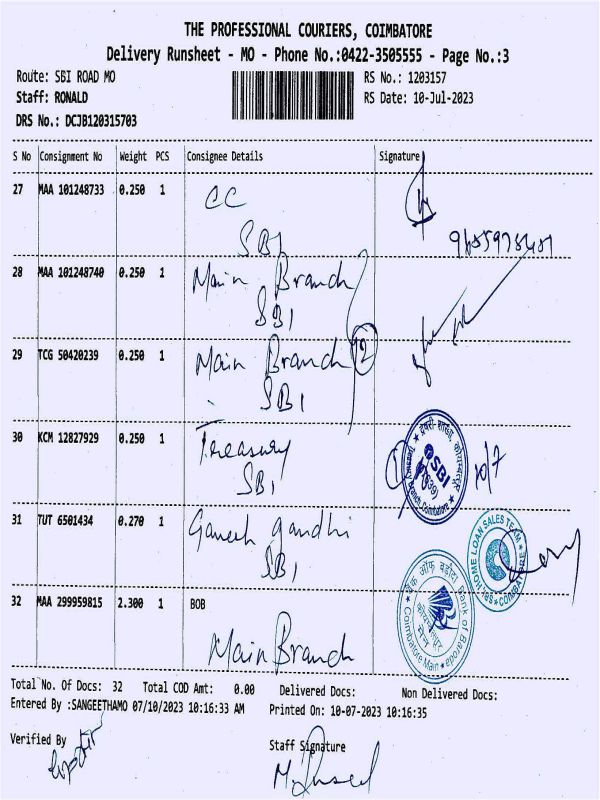 THE PROFESSIONAL COURIERS, COIMBATORE
Delivery Runsheet - MO - Phone No.:0422-3505555 - Page No.:3
Route: SBI ROAD MO
RS No.: 1203157
Staff: RONALD
RS Date: 10-Jul-2023
DRS No.: DCJB120315703
S No Consignment No Weight PCS Consignee Details Signature
27 MAA 101248733 0.250 1 CC
SBI
28 MAA 101248740 0.250 1 Main Branch
SBI
29 TCG 50420239 0.250 1 Main Branch 2
SBI
30 KCM 12827929 0.250 1 Treasury 10/7
SBI
SBI
31 TUT 6501434 0.270 1 Ganesh gandhi
SBI
HOME LOAN SALES TEAM
32 MAA 299959815 2.300 1 BOB
Main Branch
बैंक ऑफ़ बड़ौदा Bank of Baroda
Coimbatore Main
Total No. Of Docs: 32 Total COD Amt: 0.00 Delivered Docs: Non Delivered Docs:
Entered By :SANGEETHAMO 07/10/2023 10:16:33 AM Printed On: 10-07-2023 10:16:35
Verified By
Staff Signature